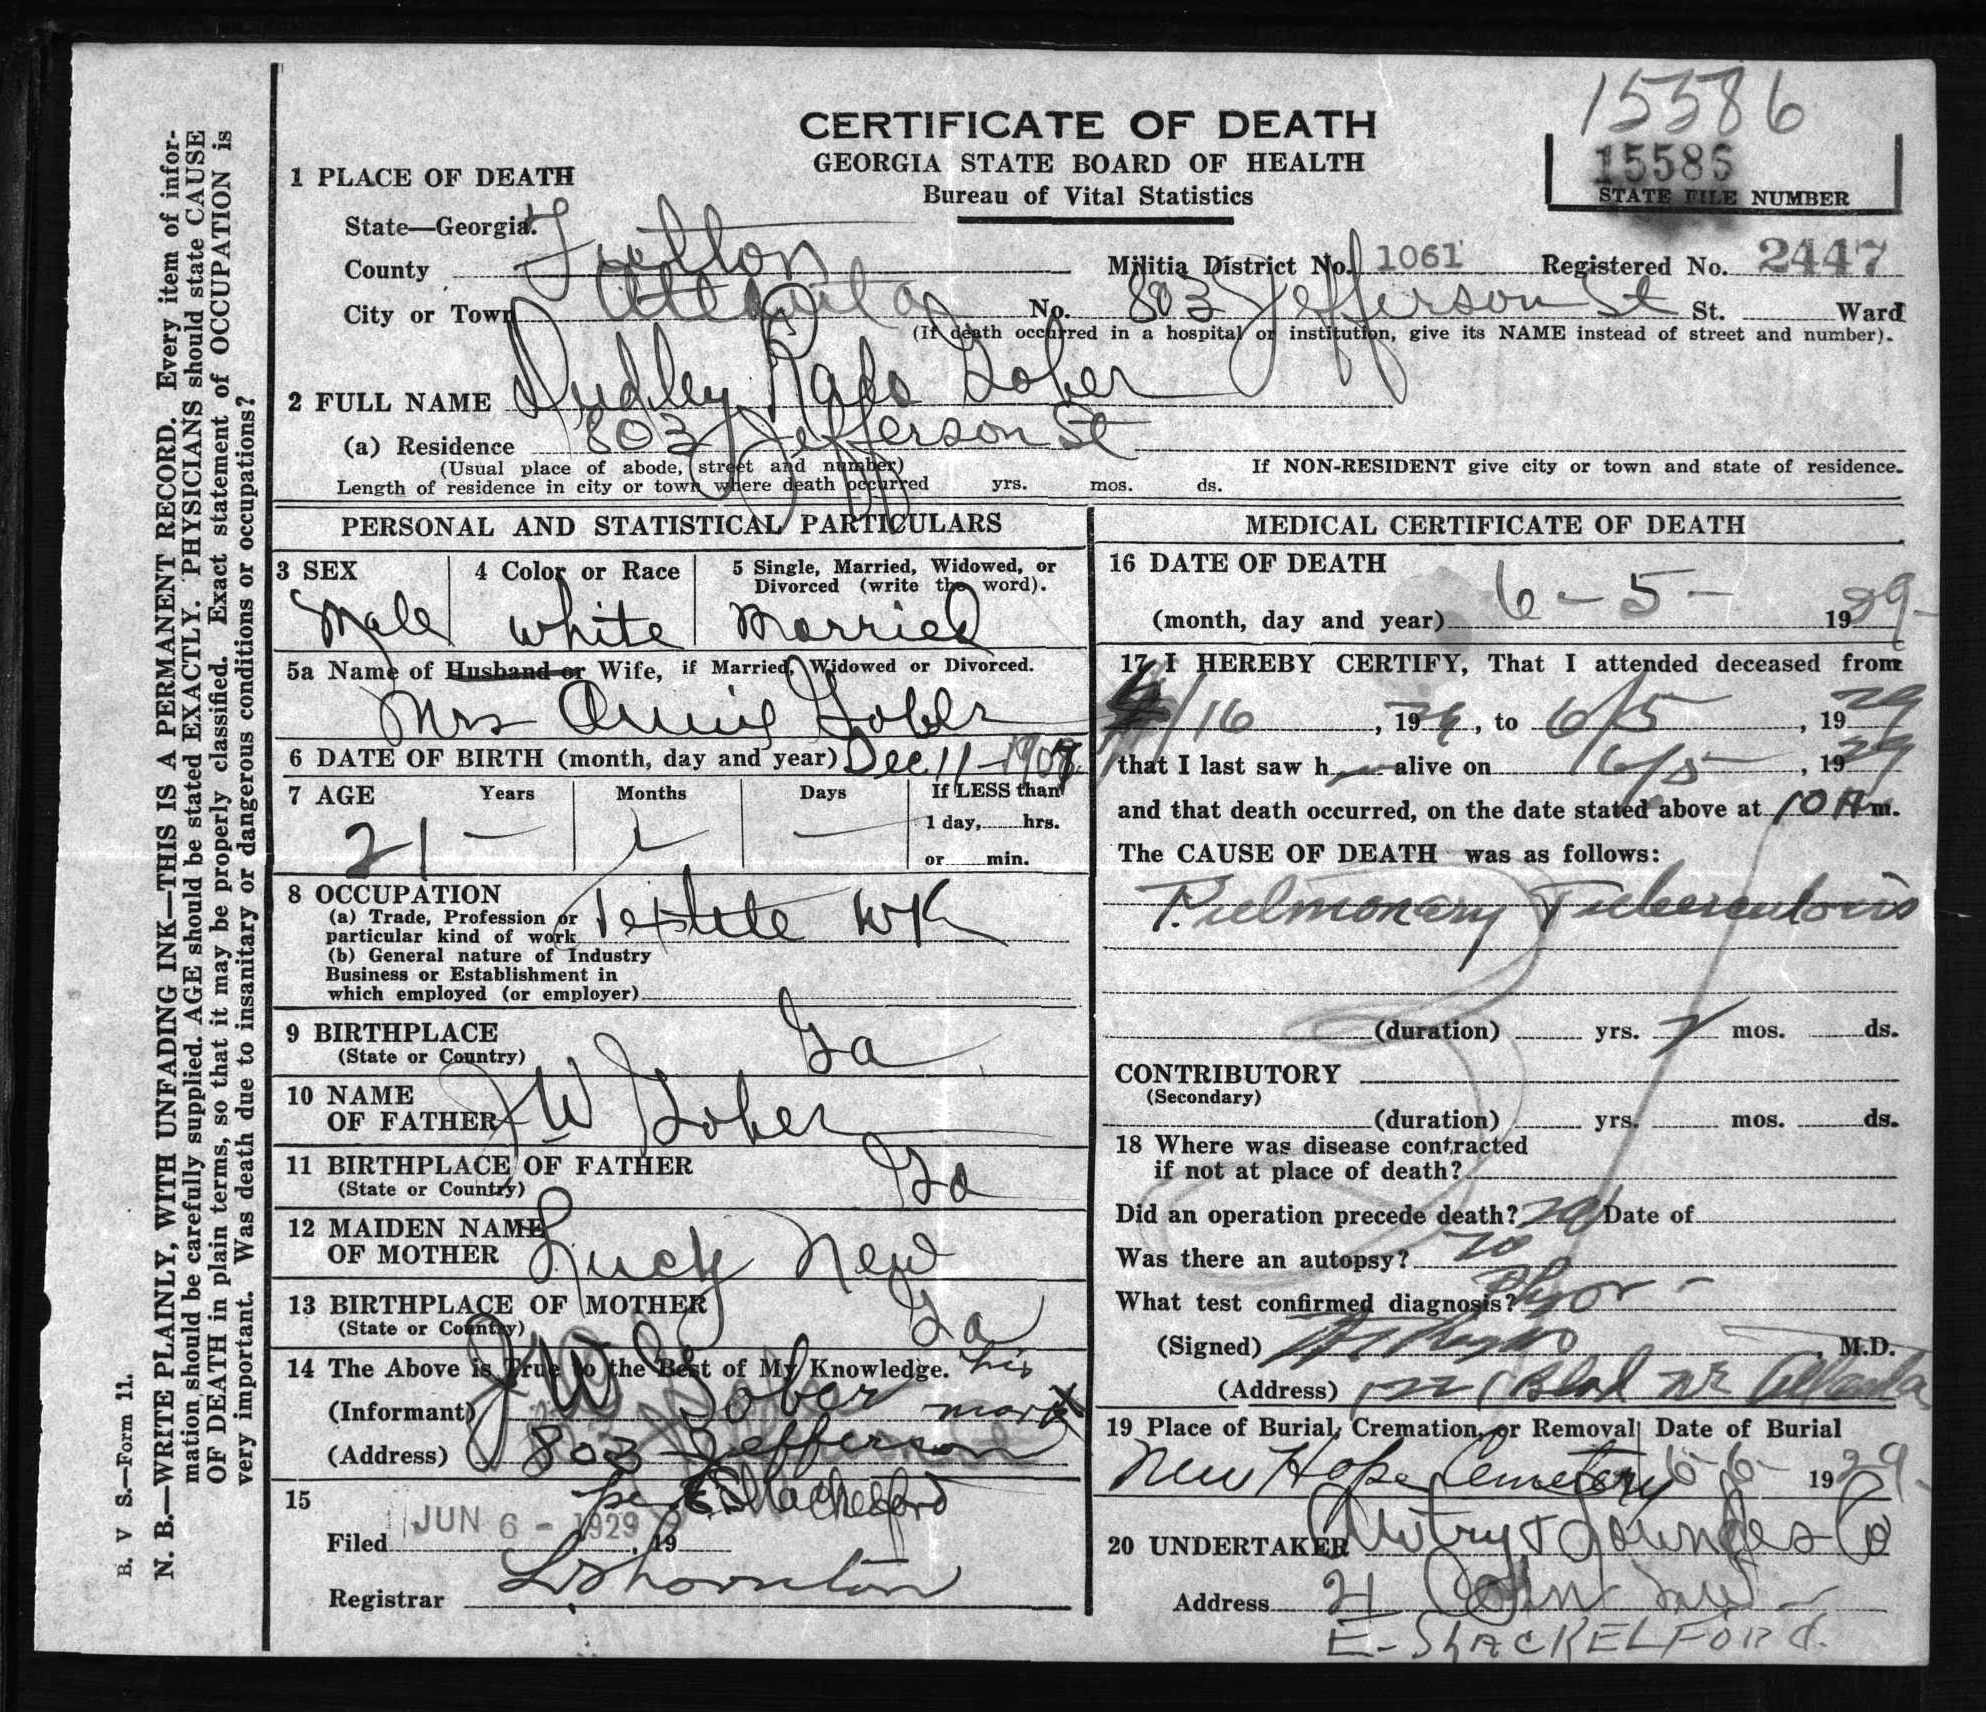 15586
15586
STATE FILE NUMBER
CERTIFICATE OF DEATH
GEORGIA STATE BOARD OF HEALTH
Bureau of Vital Statistics
1 PLACE OF DEATH
State—Georgia.
County Fulton Militia District No. 1061 Registered No. 2447
City or Town Atlanta No. 803 Jefferson St St. Ward
(If death occurred in a hospital or institution, give its NAME instead of street and number).
2 FULL NAME Dudley Gober
(a) Residence 803 Jefferson St
(Usual place of abode, street and number) If NON-RESIDENT give city or town and state of residence.
Length of residence in city or town where death occurred yrs. mos. ds.
PERSONAL AND STATISTICAL PARTICULARS
3 SEX 4 Color or Race 5 Single, Married, Widowed, or
Divorced (write the word).
Male White Married
5a Name of Husband or Wife, if Married, Widowed or Divorced.
Mrs Annie Gober
6 DATE OF BIRTH (month, day and year) Dec 11 -
7 AGE Years Months Days If LESS than
1 day, hrs.
21 — —
or min.
8 OCCUPATION
(a) Trade, Profession or
particular kind of work Textile WK
(b) General nature of Industry
Business or Establishment in
which employed (or employer)
9 BIRTHPLACE
(State or Country) Ga
10 NAME
OF FATHER J W Gober
11 BIRTHPLACE OF FATHER
(State or Country) Ga
12 MAIDEN NAME
OF MOTHER Lucy New
13 BIRTHPLACE OF MOTHER
(State or Country) Ga
14 The Above is True to the Best of My Knowledge. his
(Informant) J W Gober mark X
(Address) 803 Jefferson
15 per E Shackelford
Filed JUN 6 - 1929, 19
Registrar
MEDICAL CERTIFICATE OF DEATH
16 DATE OF DEATH
(month, day and year) 6 - 5 - 1929-
17 I HEREBY CERTIFY, That I attended deceased from
/16, 1929, to 6/5, 1929
that I last saw h alive on 6/5, 1929
and that death occurred, on the date stated above at 10 A m.
The CAUSE OF DEATH was as follows:
Pulmonary Tuberculosis
(duration) yrs. mos. ds.
CONTRIBUTORY
(Secondary)
(duration) yrs. mos. ds.
18 Where was disease contracted
if not at place of death?
Did an operation precede death? no Date of
Was there an autopsy? no
What test confirmed diagnosis?
(Signed) , M.D.
(Address) Atlanta
19 Place of Burial, Cremation, or Removal Date of Burial
New Hope Cemetery 6 6 - 1929-
20 UNDERTAKER Autry & Lowndes Co
Address 21
E-SHACKELFORD.
B. V S.—Form 11.
N. B.—WRITE PLAINLY, WITH UNFADING INK—THIS IS A PERMANENT RECORD. Every item of infor-
mation should be carefully supplied. AGE should be stated EXACTLY. PHYSICIANS should state CAUSE
OF DEATH in plain terms, so that it may be properly classified. Exact statement of OCCUPATION is
very important. Was death due to insanitary or dangerous conditions or occupations?